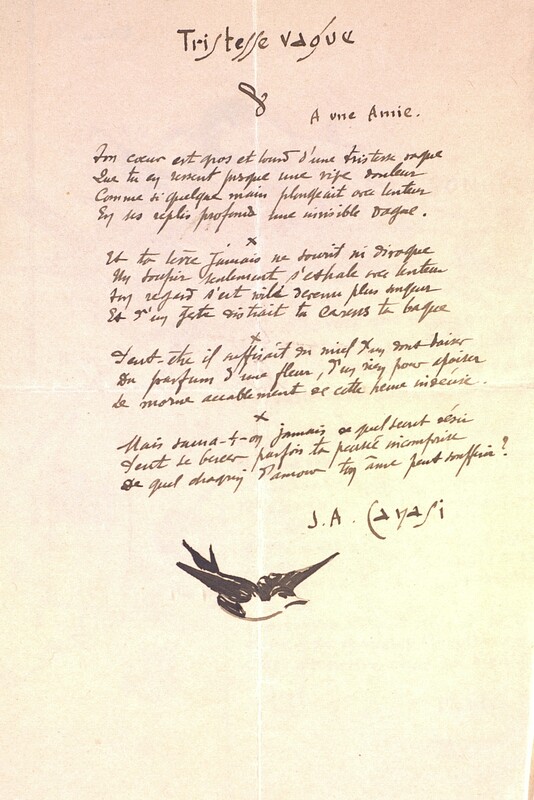 Tristesse vague
A une Amie.
Ton cœur est gros et lourd d'une tristesse vague
Que tu en ressent presque une vive douleur
Comme si quelque main plongeait avec lenteur
En ses replis profonds une invisible dague.
x
Et ta lèvre jamais ne sourit ni divague
Un soupir seulement s'exhale avec lenteur
Ton regard s'est voilé devenu plus songeur
Et d'un geste distrait tu caress ta bague
x
Peut-être il suffirait du miel d'un doux baiser
Du parfum d'une fleur, d'un rien pour apaiser
Le morne accablement de cette peine indécise.
x
Mais saura-t-on jamais de quel secret désir
Peut se bercer parfois ta pensée incomprise
De quel chagrin d'amour ton âme peut souffrir?
J.A. Cayasi